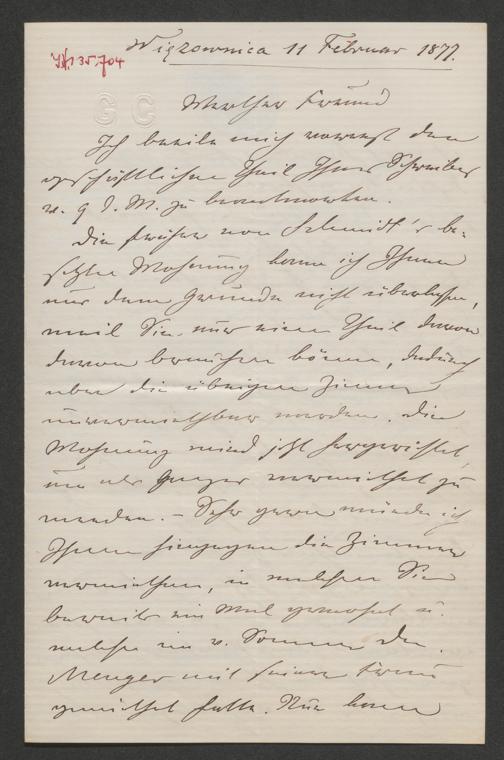 Więzownica 11 Februar 1877.
I.N. 135.704
G C
Werther Freund
Ich beeile mich vorerst den
geschäftlichen Theil Ihres Schreibens
v. 9 d. M. zu beantworten.
Die früher von Schmidt's be-
setzte Wohnung kann ich Ihnen
aus dem Grunde nicht überlassen,
weil Sie nur einen Theil davon
davon brauchen können, dadurch
aber die übrigen Zimmer
unvermiethbar werden. Die
Wohnung wird jetzt hergerichtet,
um als Ganzes vermiethet zu
werden. – Sehr gerne würde ich
Ihnen hingegen die Zimmer
vermiethen, in welchen Sie
bereits ein Mal gewohnt u.
welche im v. Sommer Dr.
Menger mit seiner Frau
gemiethet hatte. Nur kann